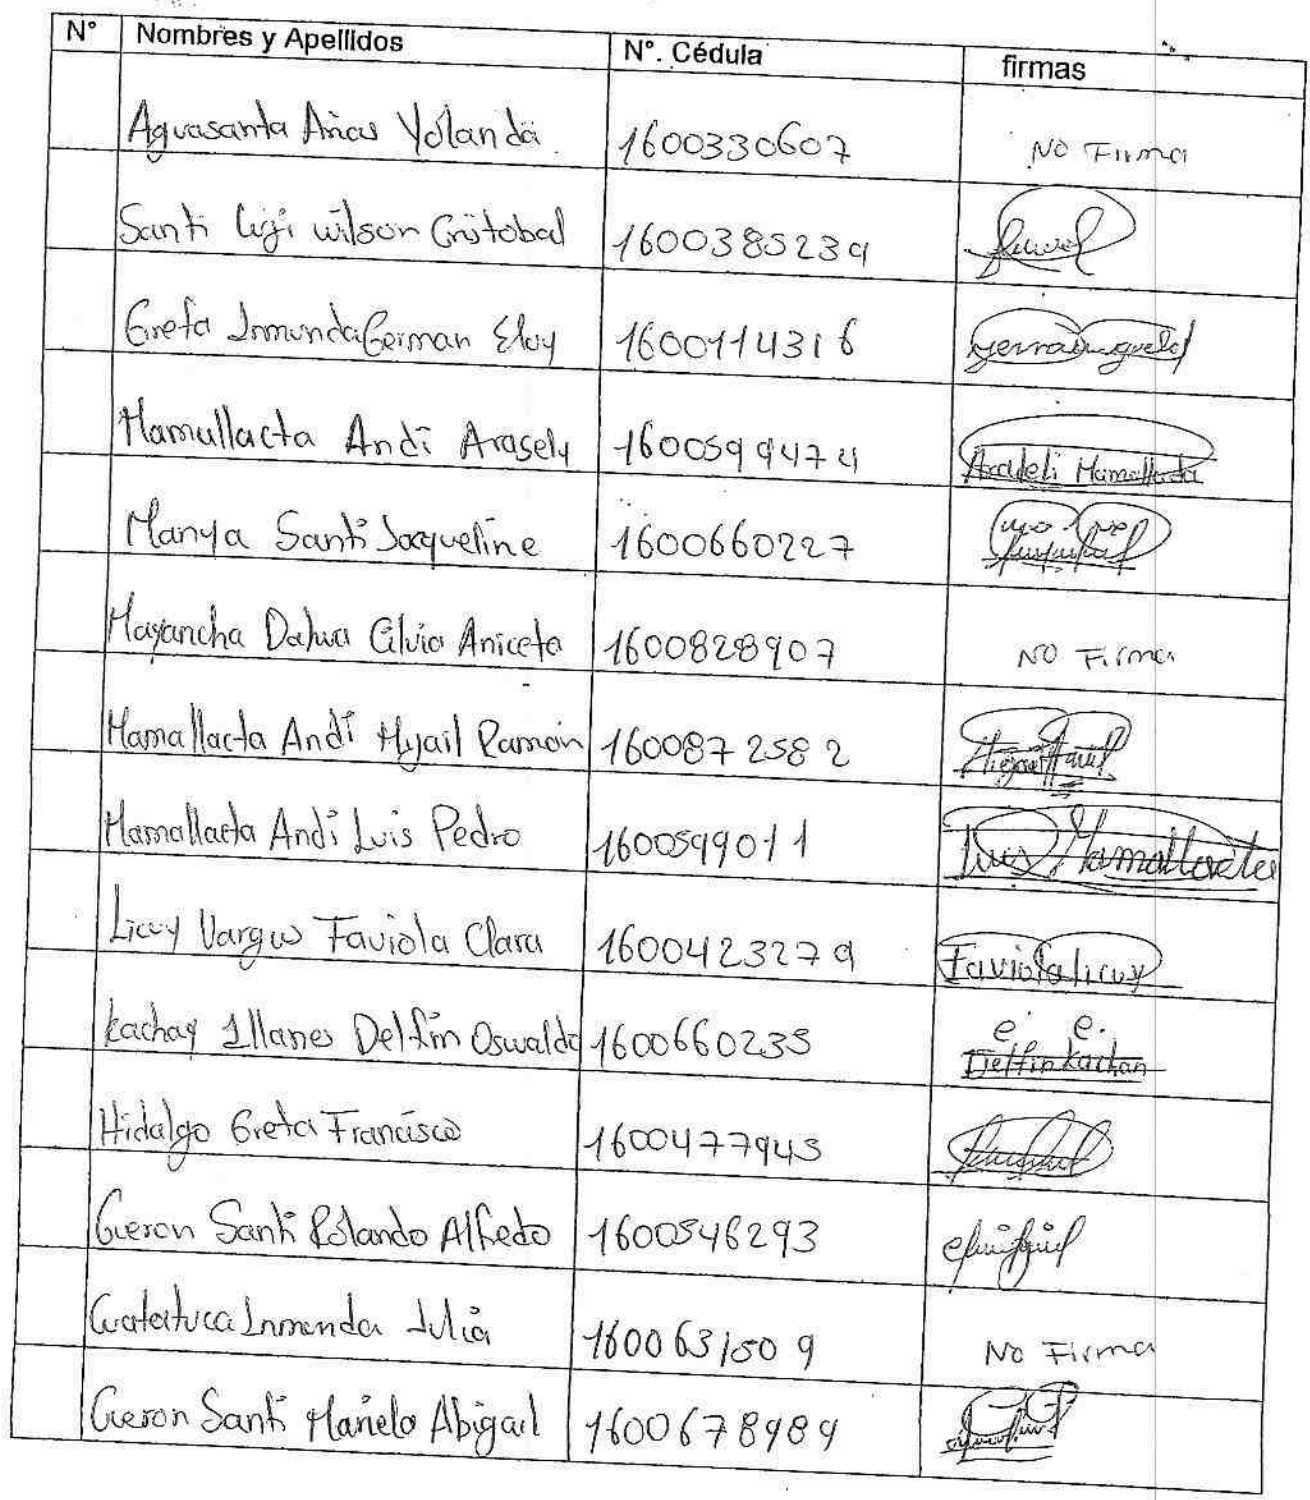 N° Nombres y Apellidos N°. Cédula firmas
Aguasanta Añas Yolanda 1600330607 NO Firma
Santi wilson Cristobal 1600385239
Grefa Inmunda German Eloy 1600114316
Mamullacta Andi Arasely 1600599474 Aradeli Mamallacta
Manya Santi Jacqueline 1600660227
Mayancha Dahua Cilvia Aniceta 1600828907 NO Firma
Mamallacta Andi Myail Ramon 1600872582
Mamallacta Andi Luis Pedro 1600599011 Luis Mamallacta
Licuy Vargas Faviola Clara 1600423279 Faviola licuy
Kachay Illanes Delfin Oswaldo 1600660235 Delfin Kachan
Hidalgo Grefa Francisco 1600477945
Gueron Santi Rolando Alfredo 1600546293
Guatatuca Inmunda Julia 1600631509 No Firma
Gueron Santi Mariela Abigail 1600678989